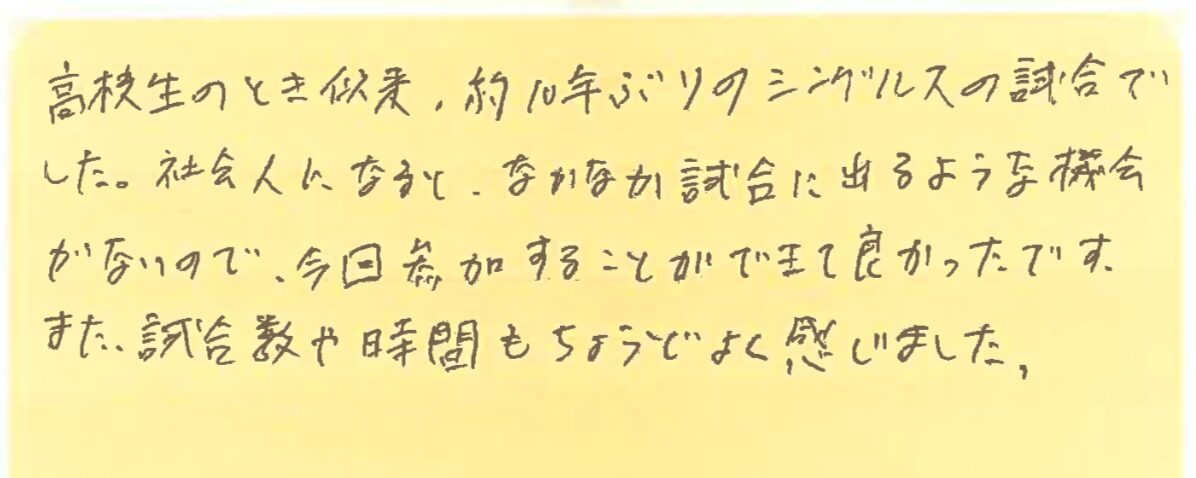 高校生のとき似来、約10年ぶりのシングルスの試合で
した。社会人になると、なかなか試合に出るような機会
がないので、今回参加することができて良かったです。
また、試合数や時間もちょうどよく感じました。